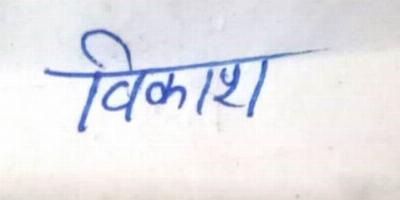 विकाश